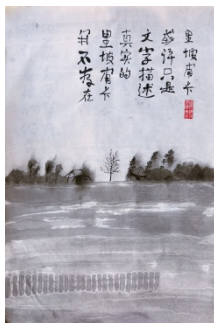 里坡甫卡
或许只是
文字描述
真实的
里坡甫卡
并不存在